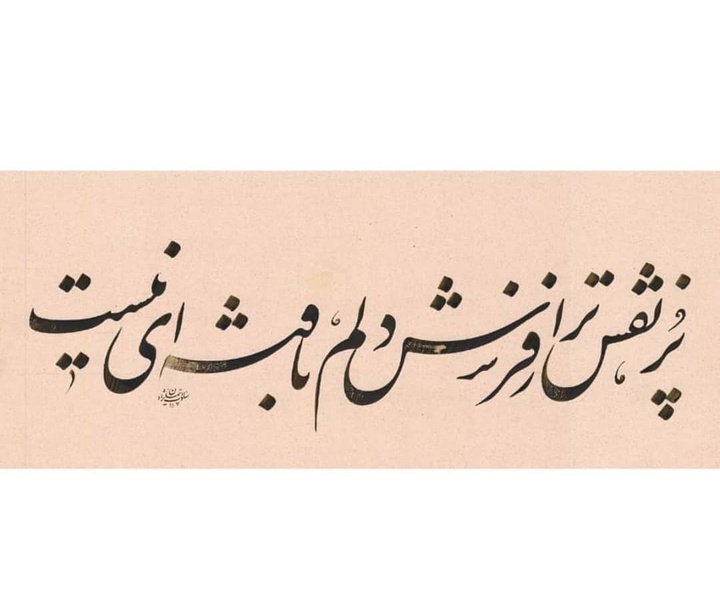 پُر نقش تر از فرش دلم بافته ای نیست